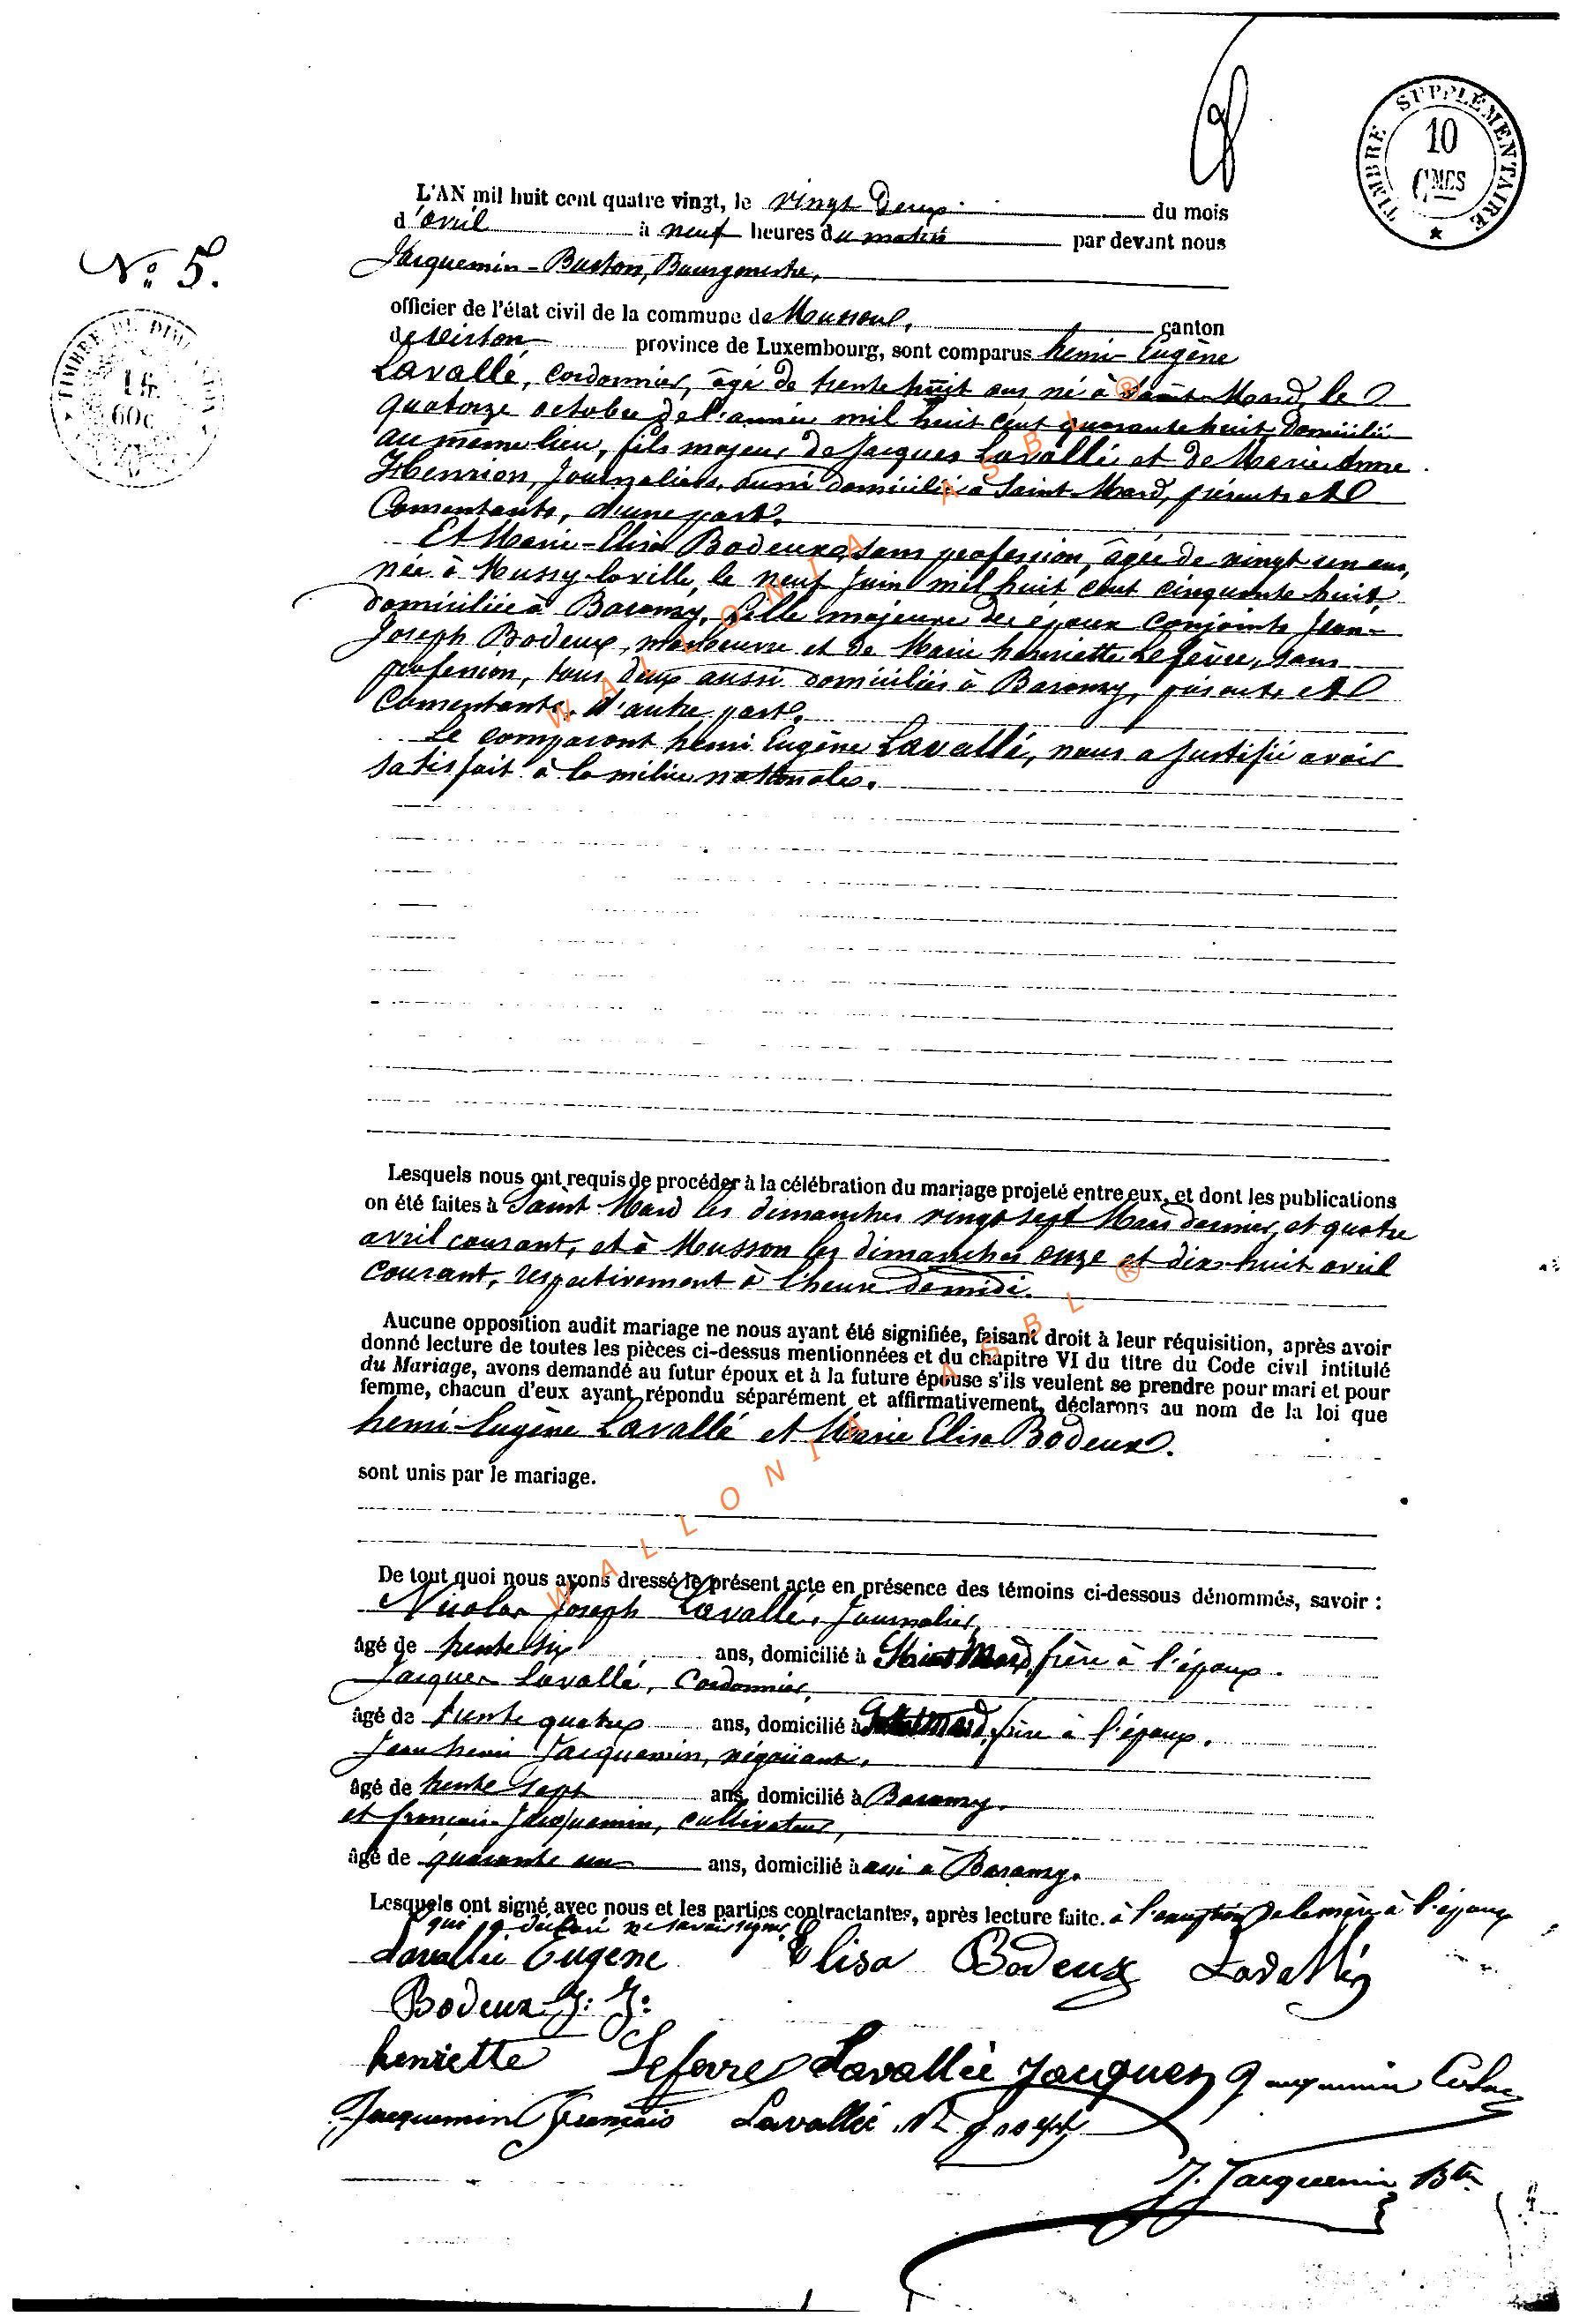 TIMBRE SUPPLÉMENTAIRE
10
CMES
N° 5.
TIMBRE DE DIMENSION
1 fr.
60c
L'AN mil huit cent quatre vingt, le vingt deux du mois
d'avril à neuf heures du matin par devant nous
Jacquemin-Buston, Bourgmestre,
officier de l'état civil de la commune de Musson, canton
de Virton province de Luxembourg, sont comparus henri Eugène
Lavallé, cordonnier, âgé de trente huit ans, né à Saint-Mard, le
quatorze octobre de l'année mil huit cent quarante huit, domicilié
au même lieu, fils majeur de Jacques Lavallé et de Marie Anne
Henrion, Journaliers, aussi domiciliés à Saint-Mard, présents et
Consentants, d'une part.
Et Marie-Elisa Bodeux, sans profession, âgée de vingt un ans,
née à Mussy-la-ville, le neuf Juin mil huit cent cinquante huit,
domiciliée à Baranzy, fille majeure des époux conjoints Jean-
Joseph Bodeux, manœuvre et de Marie henriette Lefèvre, sans
profession, tous deux aussi domiciliés à Baranzy, présents et
Consentants, d'autre part.
Le comparant henri Eugène Lavallé, nous a justifié avoir
satisfait à la milice nationale.
Lesquels nous ont requis de procéder à la célébration du mariage projeté entre eux, et dont les publications
on été faites à Saint-Mard les dimanches vingt sept Mars dernier, et quatre
avril courant, et à Musson les dimanches onze et dix-huit avril
courant, respectivement à l'heure de midi.
Aucune opposition audit mariage ne nous ayant été signifiée, faisant droit à leur réquisition, après avoir
donné lecture de toutes les pièces ci-dessus mentionnées et du chapitre VI du titre du Code civil intitulé
du Mariage, avons demandé au futur époux et à la future épouse s'ils veulent se prendre pour mari et pour
femme, chacun d'eux ayant répondu séparément et affirmativement, déclarons au nom de la loi que
henri-Eugène Lavallé et Marie Elisa Bodeux.
sont unis par le mariage.
De tout quoi nous avons dressé le présent acte en présence des témoins ci-dessous dénommés, savoir :
Nicolas Joseph Lavallé, Journalier,
âgé de trente six ans, domicilié à Saint Mard, frère à l'époux.
Jacques Lavallé, Cordonnier,
âgé de trente quatre ans, domicilié à Saint Mard, frère à l'époux.
Jean henri Jacquemin, négociant,
âgé de trente sept ans, domicilié à Baranzy.
et françois Jacquemin, cultivateur,
âgé de quarante un ans, domicilié à aussi à Baranzy.
Lesquels ont signé avec nous et les parties contractantes, après lecture faite. à l'exception de la mère à l'époux
qui a déclaré ne savoir signer
Lavallée Eugène Elisa Bodeux Lavallée
Bodeux J. J.
henriette Lefevre Lavallée Jacques Jacquemin
Jacquemin François Lavallée N. Joseph
J. Jacquemin Bton
WALLONIA ASBL ®
WALLONIA ASBL ®